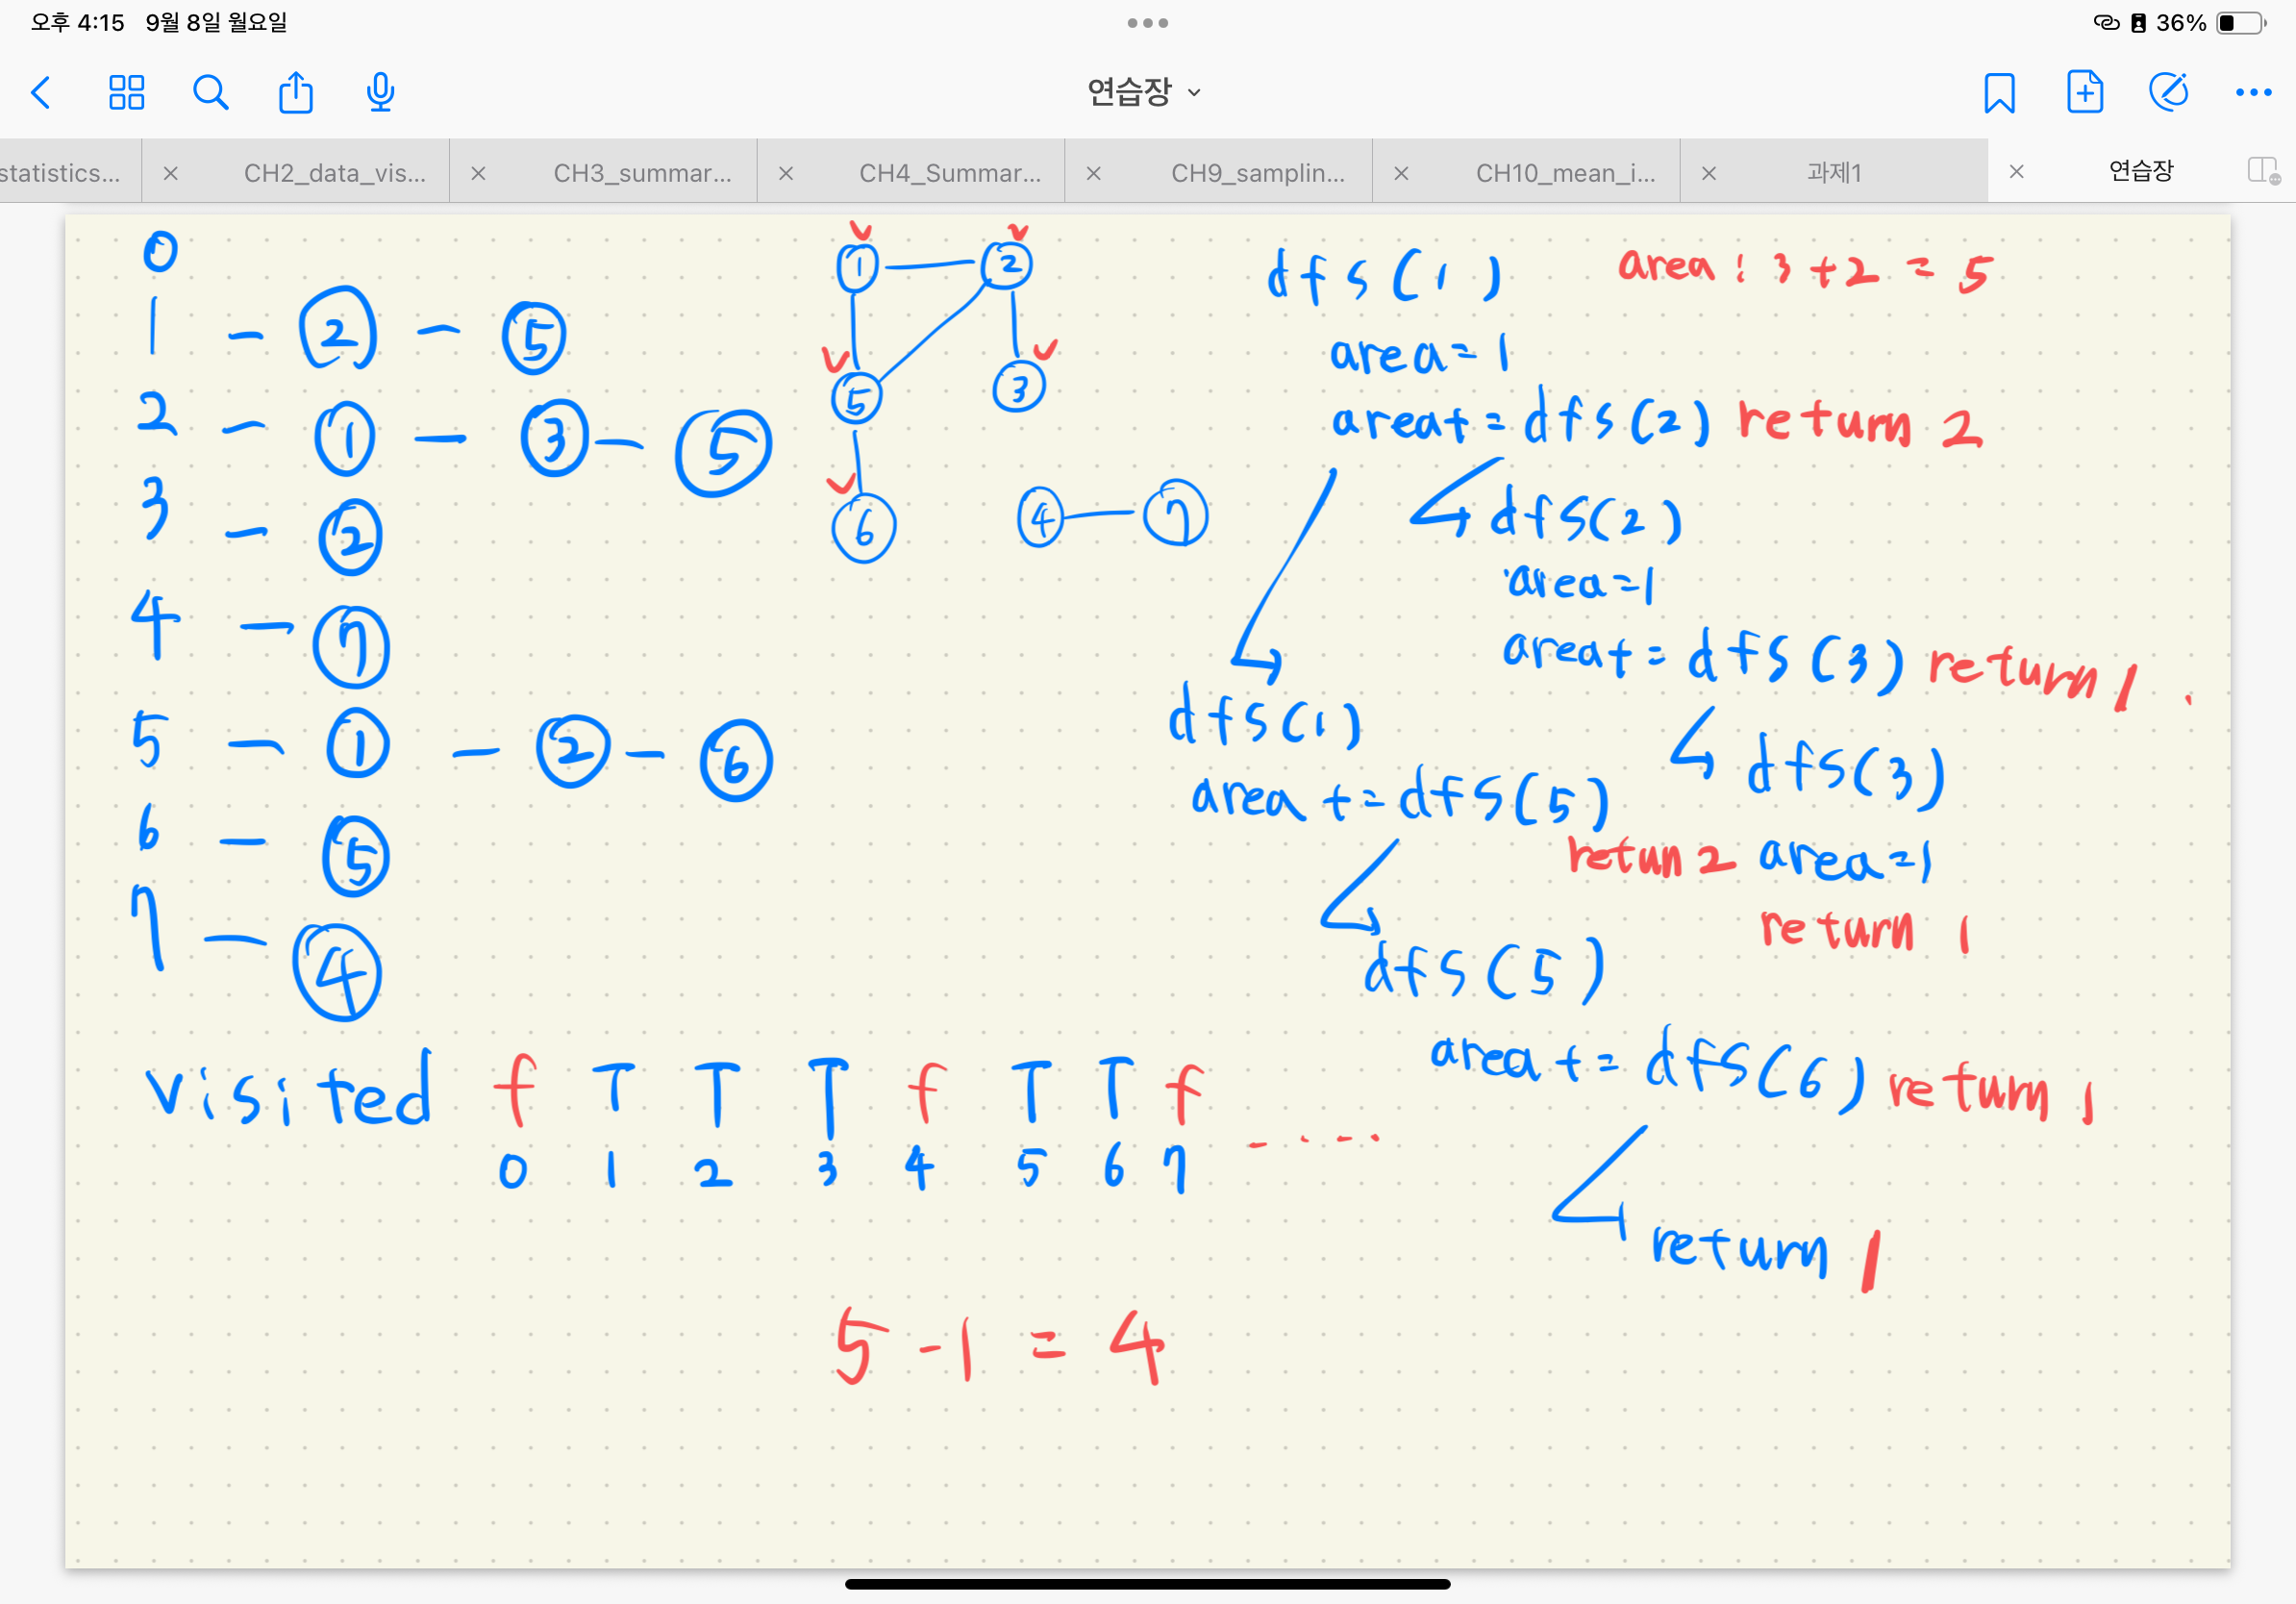 오후 4:15 9월 8일 월요일
36%
연습장
statistics...
CH2_data_vis...
CH3_summar...
CH4_Summar...
CH9_samplin...
CH10_mean_i...
과제1
연습장
0
1 - 2 - 5
2 - 1 - 3 - 5
3 - 2
4 - 7
5 - 1 - 2 - 6
6 - 5
7 - 4
1 2
5 3
6 4 7
dfs(1)
area : 3+2 = 5
area=1
area+=dfs(2) return 2
dfs(2)
area=1
area+=dfs(3) return 1
dfs(3)
area=1
return 1
dfs(1)
area+=dfs(5)
retun 2
dfs(5)
area+=dfs(6) return 1
return 1
visited f T T T f T T f ....
0 1 2 3 4 5 6 7
5-1 = 4